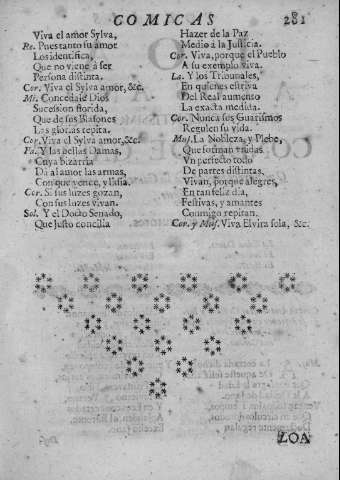 COMICAS 281
Viva el amor Sylva,
Re. Pues tanto su amor
Los identifica,
Que no viene à ser
Persona distinta.
Cor. Viva el Sylva amor, &c.
Mi. Concedale Dios
Sucession florida,
Que de sus Blasones
Las glorias repita.
Cor. Viva el Sylva amor, &c.
Fa. Y las bellas Damas,
Cuya bizarria
Dà al amor las armas,
Con que vence, y lisia.
Cor. Si sus luzes gozan,
Con sus luzes vivan.
Sol. Y el Docto Senado,
Que justo concilia
Hazer de la Paz
Medio à la Justicia.
Cor. Viva, porque el Pueblo
A su exemplo viva.
La. Y los Tribunales,
En quienes estriva
Del Real aumento
La exacta medida.
Cor. Nunca sus Guarismos
Regulen su vida.
Mus. La Nobleza, y Plebe,
Que forman vnidas
Vn perfecto todo
De partes distintas,
Vivan, porque alegres,
En tan feliz dia,
Festivas, y amantes
Conmigo repitan.
Cor. y Mus. Viva Elvira sola, &c.
LOA